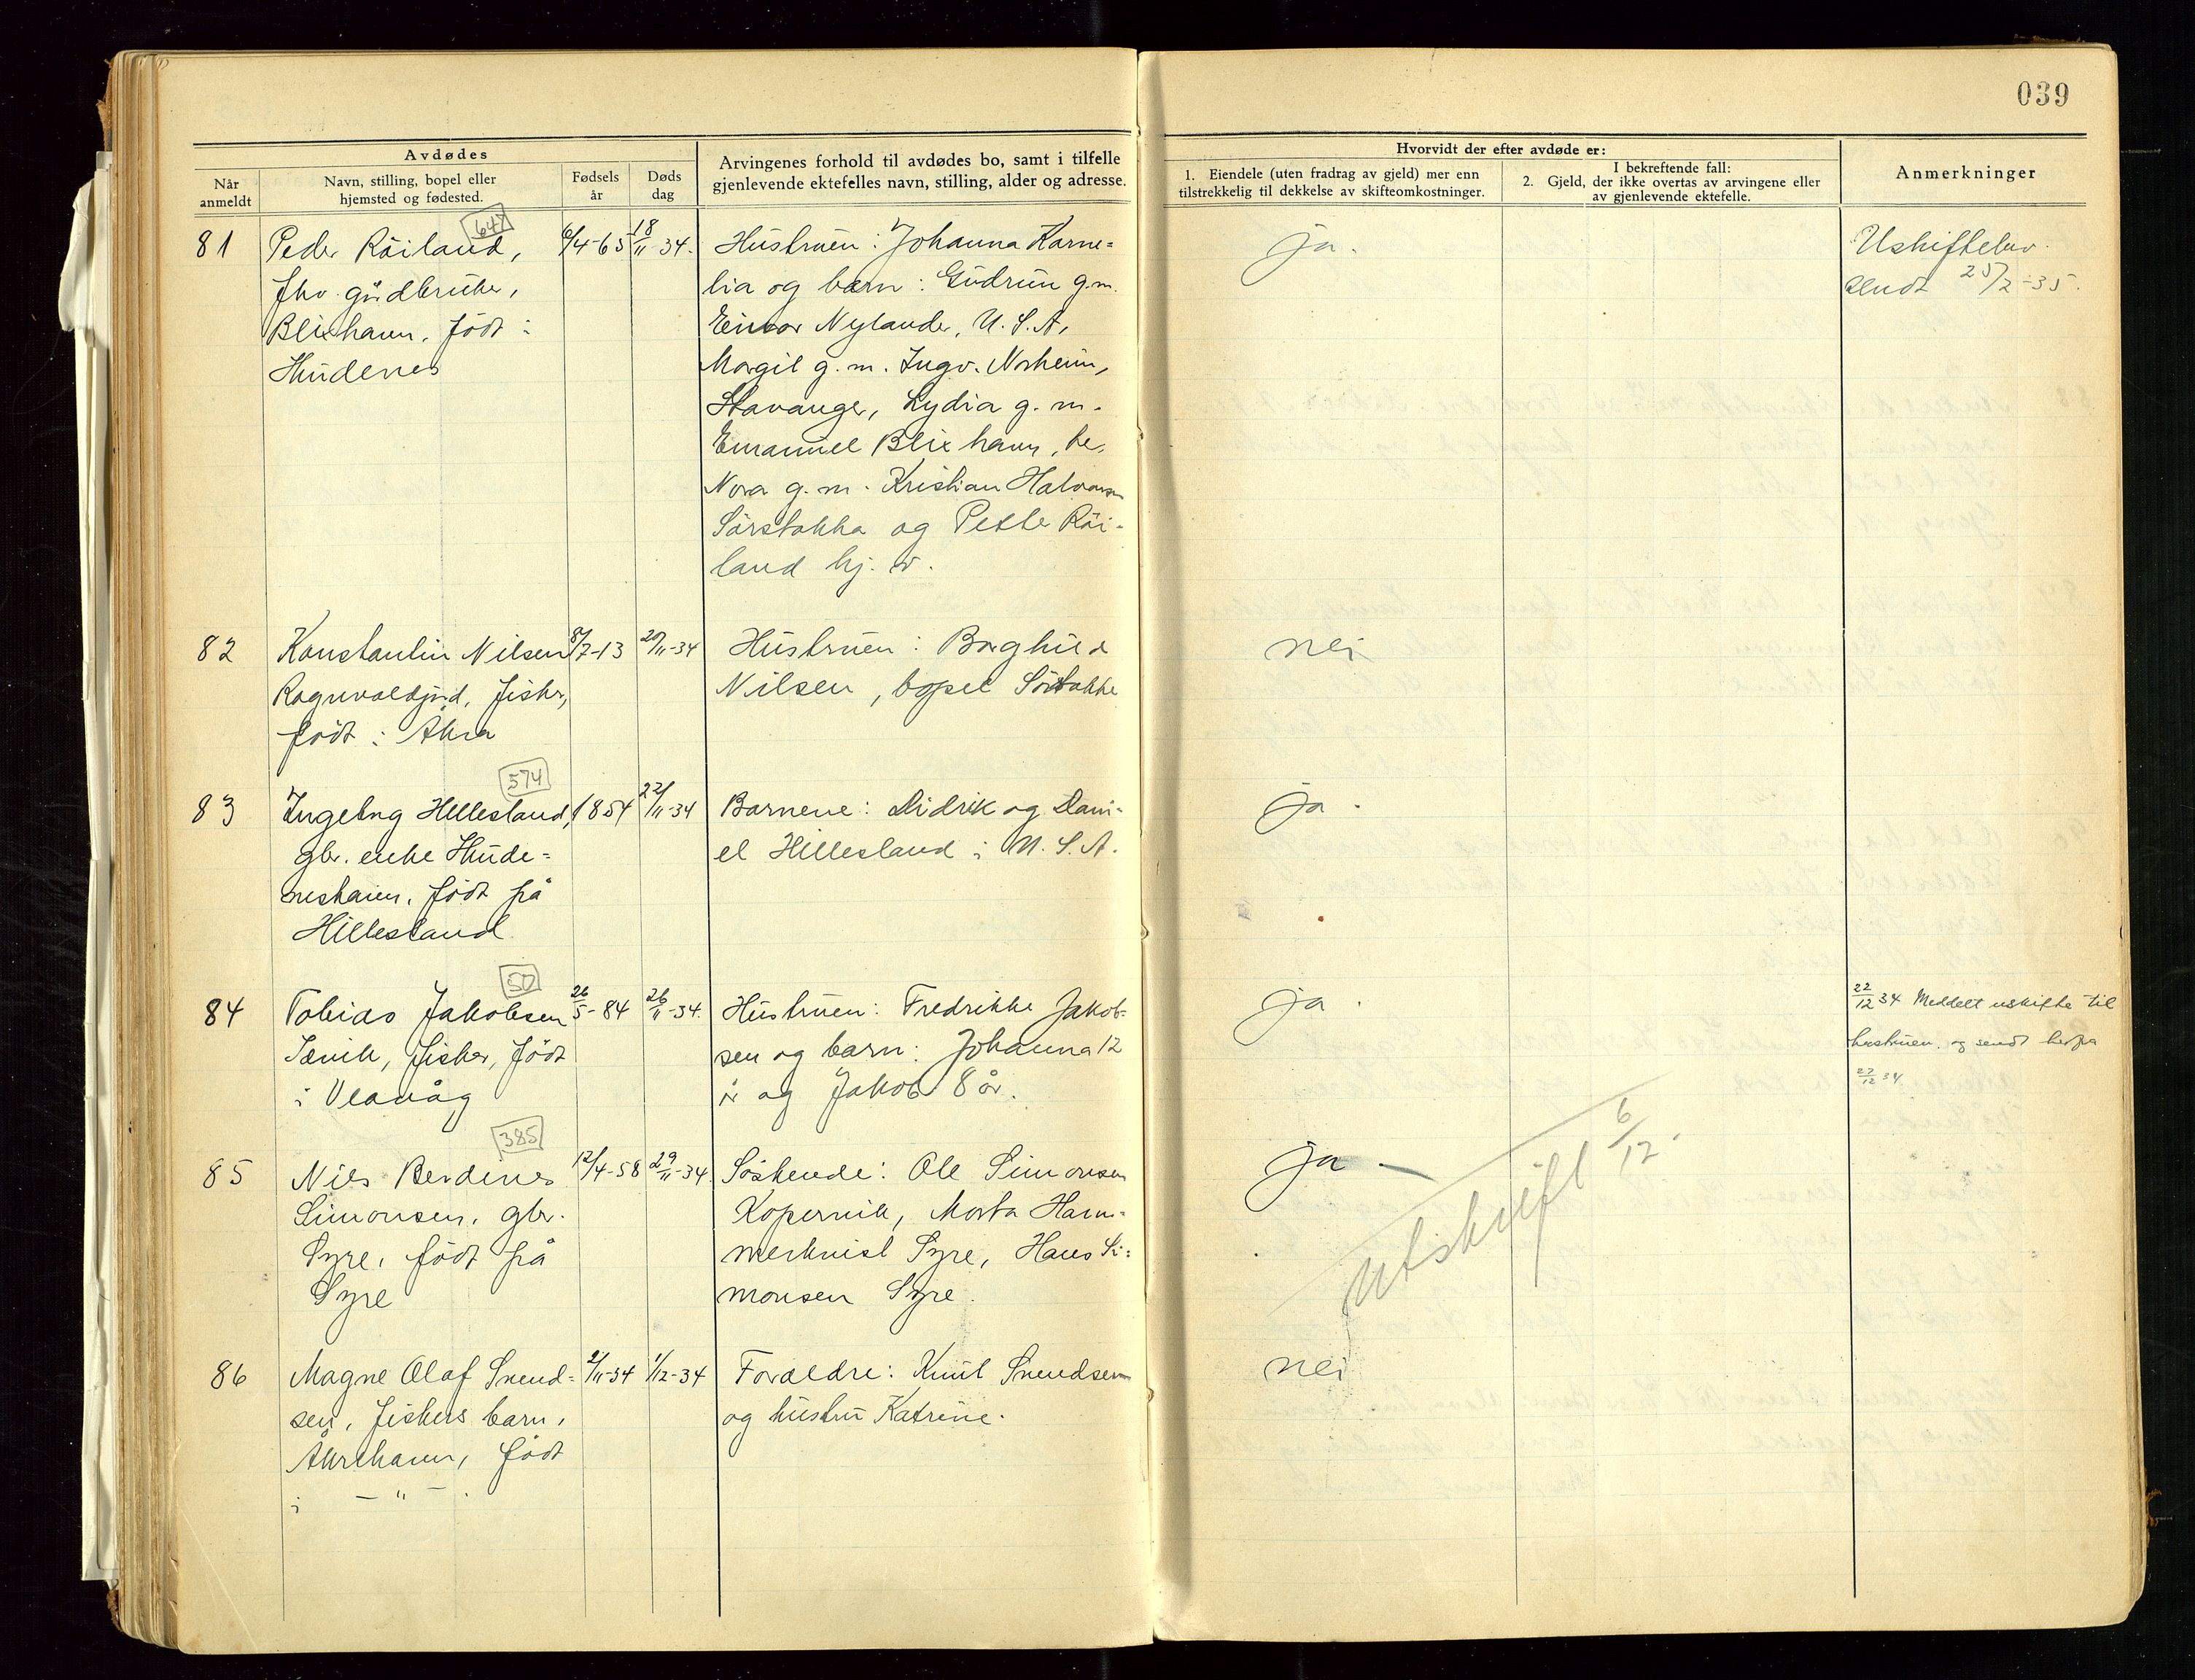 039
Avdødes
Når anmeldt
Navn, stilling, bopel eller hjemsted og fødested.
Fødsels år
Døds dag
Arvingenes forhold til avdødes bo, samt i tilfelle
gjenlevende ektefelles navn, stilling, alder og adresse.
Hvorvidt der efter avdøde er:
1. Eiendele (uten fradrag av gjeld) mer enn
tilstrekkelig til dekkelse av skifteomkostninger.
I bekreftende fall:
2. Gjeld, der ikke overtas av arvingene eller
av gjenlevende ektefelle.
Anmerkninger
81
Peder Röiland,
fhv. gårdbruker,
Blixhavn, født i
Hudenes
6/4-65
18/11-34.
Hustruen: Johanna Karne=
lia og barn: Gudrun g.m.
Einar Nylander, U.S.A,
Margit g.m. Ingv. Norheim,
Stavanger, Lydia g.m.
Emanuel Blixhavn, her,
Nora g.m. Kristian Halvorsen
Sörstokke og Peder Röi-
land hj. v.
ja.
Uskiftebev.
sendt 25/2-35.
82
Konstantin Nilsen
fisker,
født i Åkra
8/7-13
20/11-34
Hustruen: Borghild
Nilsen, bopel Sörstokke
nei
83
574
Ingeborg Hillesland,
gbr. enke Hude=
neshavn, født på
Hillesland
1854
22/11-34
Barnene: Didrik og Dani-
el Hillesland i U.S.A.
ja.
84
Tobias Jakobsen
Sævik, fisker, født
i Veavåg
26/5-84
26/11-34.
Hustruen: Fredrikke Jakob-
sen og barn: Johanna 12
år og Jakob 8 år.
ja.
22/12 34 Meddelt uskifte til
hustruen og sendt herfra
22/12 34
85
385
Nils Berdines
Simonsen, gbr.
Syre, født på
Syre
12/4-58
29/11-34.
Søskende: Ole Simonsen
Kopervik, Marta Ham=
merkvist Syre, Hans Si=
monsen Syre.
ja -
utskrift 6/12.
86
Magne Olaf Svend=
sen, fiskers barn,
Åkrehavn, født
i - " - .
2/11-34
1/12-34
Forældre: Knut Svendsen
og hustru Katrine.
nei